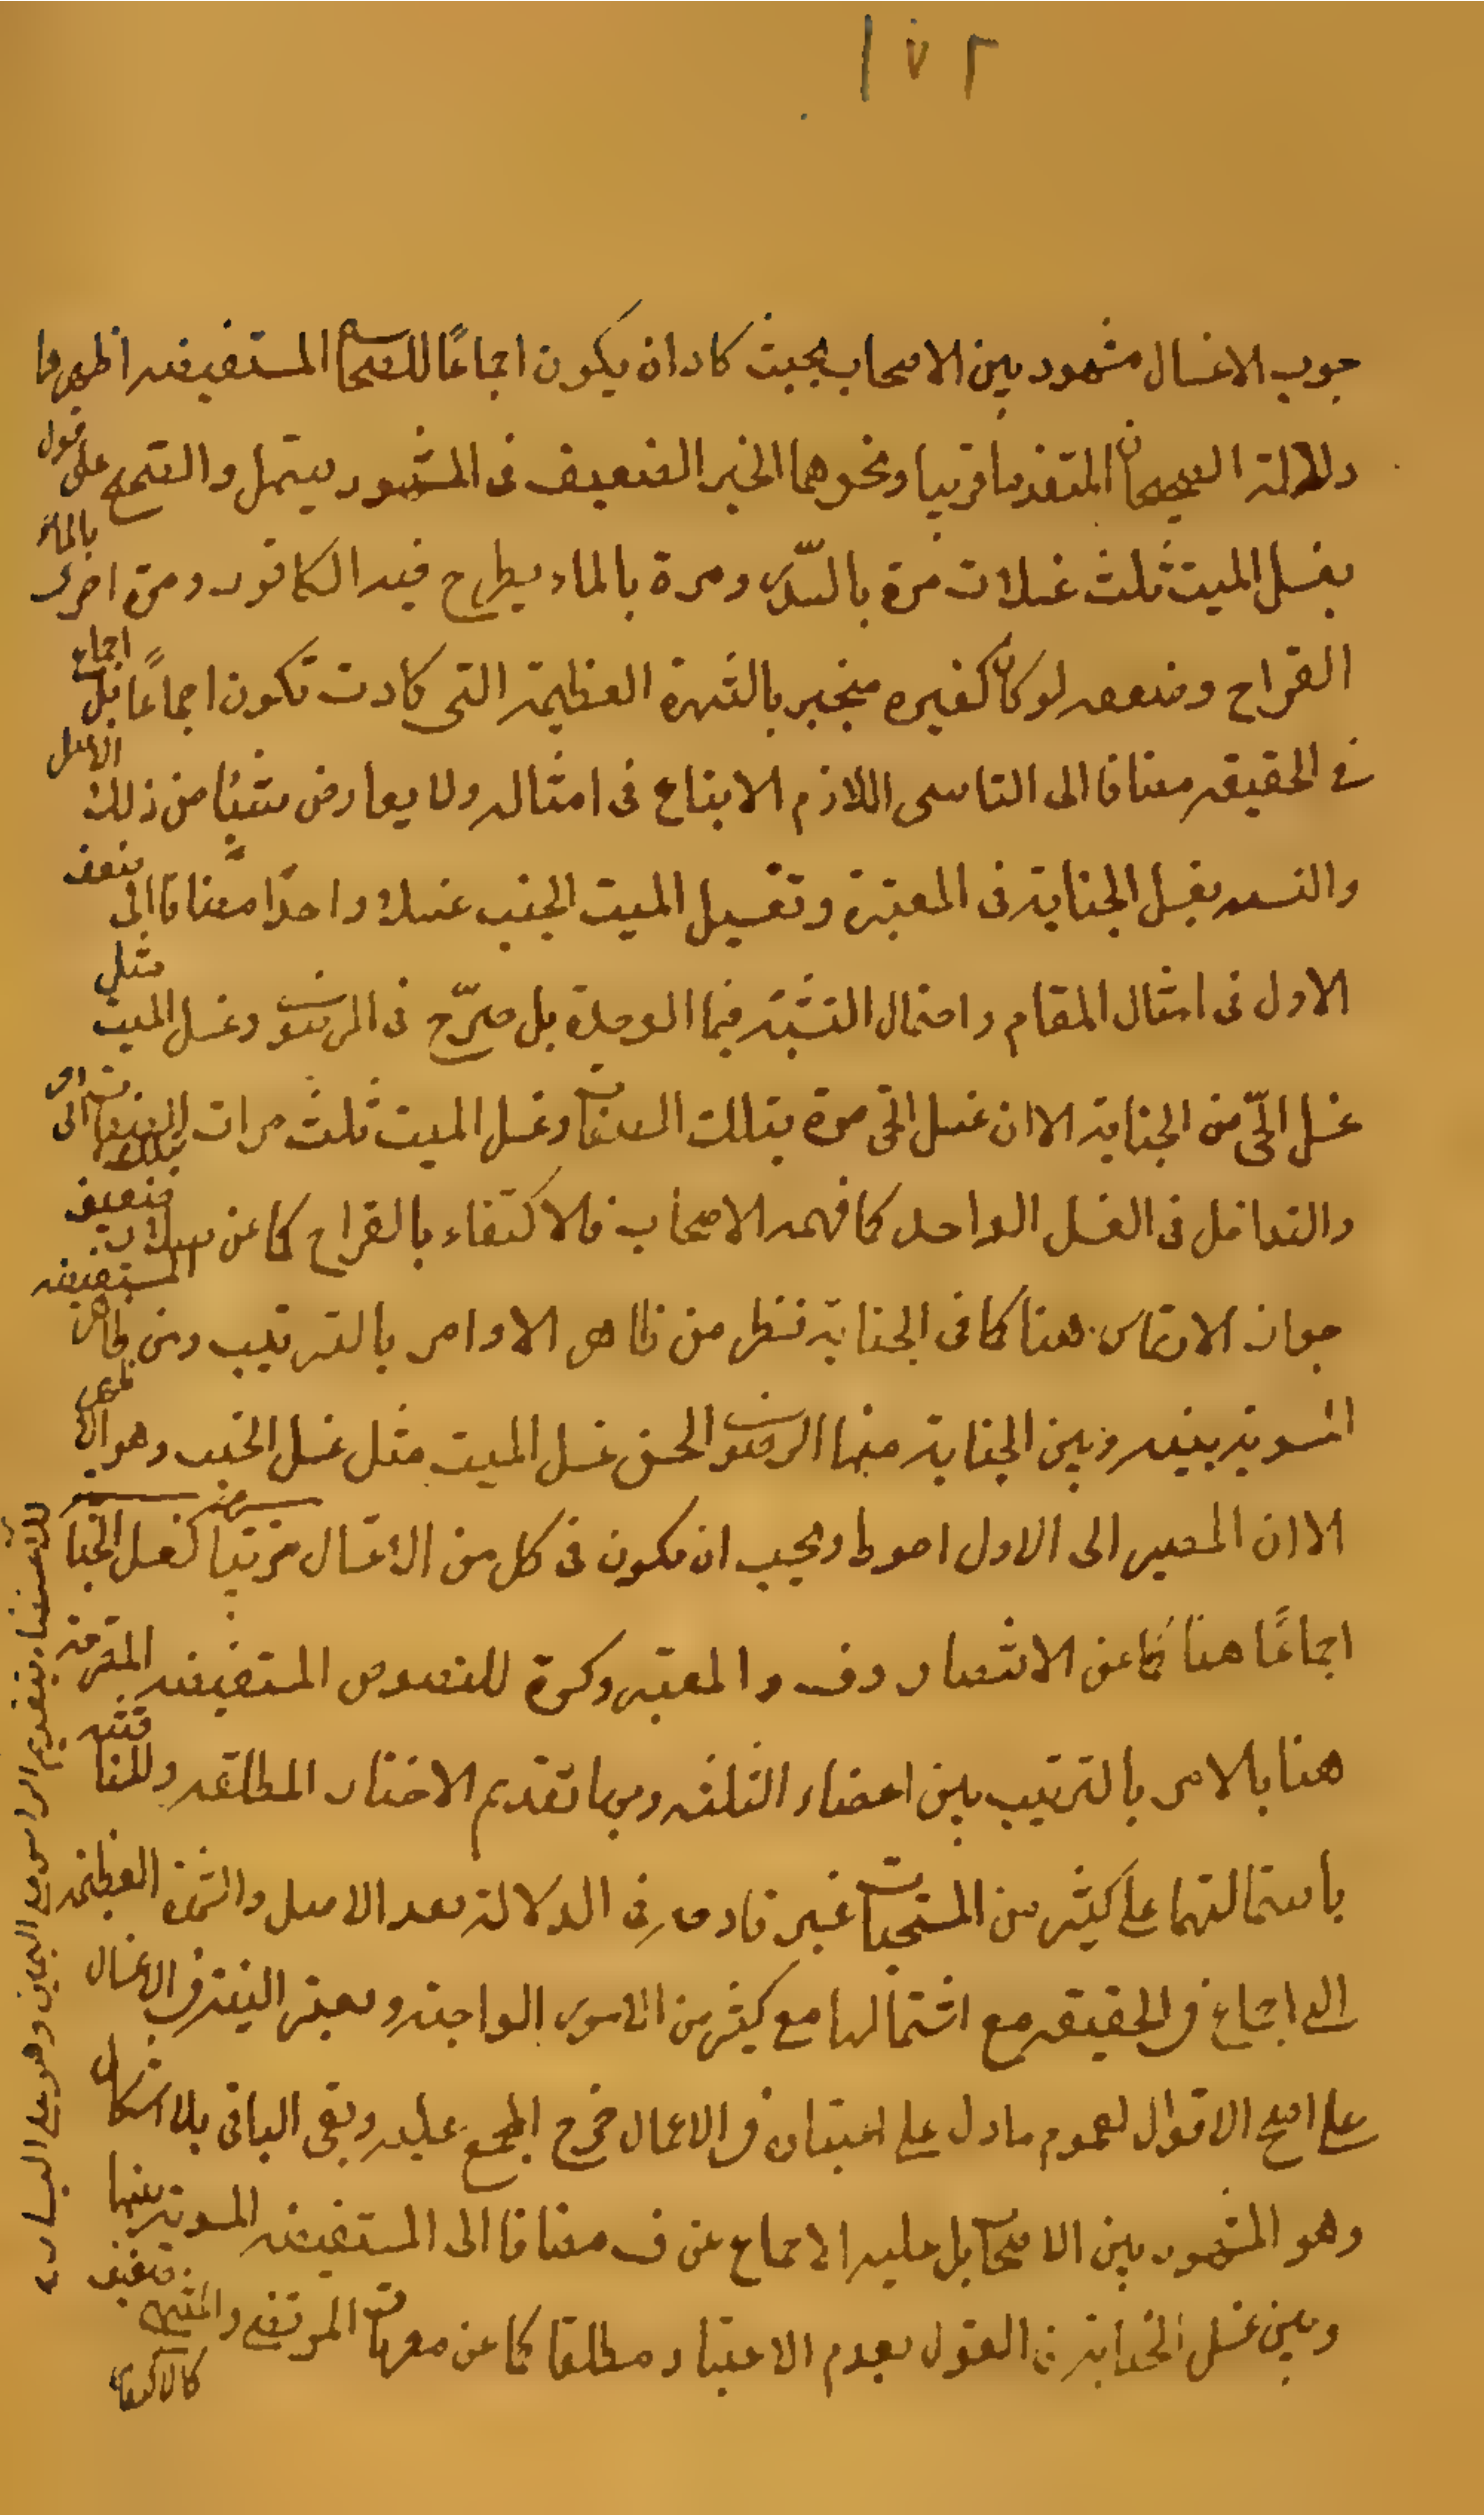 ١٧٢
جوب الاغسال مشهور بين الاصحاب بحيث كاد ان يكون اجماعًا للصحاح المستفيضه اظهرها
دلالة الصحيحان المتقدما قريبا ونحوهما الخبر الضعيف فى المشهور بسهل والصحيح على قول
يغسل الميت ثلث غسلات مرة بالسّدر ومرة بالماء يطرح فيه الكافور ومرة اخرى بالماء
القراح وضعفه لو كان كغيره منجبر بالشهرة العظيمة التى كادت تكون اجماعًا بل اجماع
فى الحقيقه مضافا الى التاسى اللازم الاتباع فى امثاله ولا يعارض شيئا من ذلك الاصل
والتشبيه بغسل الجنابة فى المعتبرة وتغسيل الميت الجنب غسلا واحدًا مضافا الى ضعف
الاول فى امثال المقام واحتمال التشبيه فيما الوحدة بل صرّح فى الرضوى وغسل الميت مثل
غسل الحّى من الجنابة الا ان غسل الحى مرة بتلك الصفات وغسل الميت ثلث مرات بتلك الصفات
والتداخل فى الغسل الواحد كما فهمه الاصحاب فالاكتفاء بالقراح كما عن سلار ضعيف
جواز الارتماس هنا كما فى الجنابة نظر من ظاهر الاوامر بالترتيب ومن ظاهر المستفيضه
المسوية بينه وبين الجنابة منها الرضوى الحسن غسل الميت مثل غسل الجنب وهو
الا ان المصير الى الاول احوط ويجب ان يكون فى كل من الاغسال مرتبا كغسل الجنا
اجماعًا هنا كما عن الانتصار وف والمعتبر وكرة للنصوص المستفيضه المصرحه
هنا بالامر بالترتيب بين اعضاء الثلثه وبها تقديم الاخبار المطلقه والمناقشه
باشتمالتها على كثير من المستحبات غير قادحه فى الدلالة بعد الاصل والشهرة العظيمه
الى اجماع فى الحقيقه مع اشتمالها مع كثير من الامور الواجبه ويعتبر النيه فى الاغسال
على اصح الاقوال لعموم ما دل على اعتبارها فى الاعمال خرج المجمع عليه وبقى الباقى بلا اشكال
وهو المشهور بين الاصحاب بل عليه الاجماع عن ف مضافا الى المستفيضه المسويه بينها
وبين غسل الجنابة فالقول بعدم الاعتبار مطلقا كما عن مصريات المرتضى والمنتهى ضعيف
كالاكتفاء
بتقديم الراس على اليمين وهو على اليسار